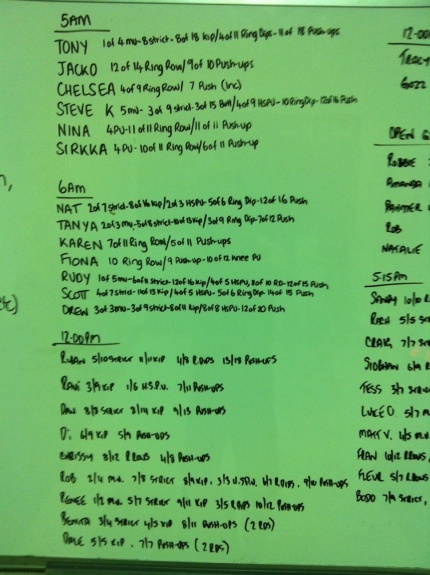 5AM
TONY 1 of 4 mu-8 strict-8 of 18 Kip/4 of 11 Ring Dips-11 of 18 Push-ups
JACKO 12 of 14 Ring Row/9 of 10 Push-ups
CHELSEA 4 of 9 Ring Row/ 7 Push (inc)
STEVE K 5mu- 3 of 9 strict-3 of 15 Butt/4 of 9 HSPU-10 Ring Dip-12 of 16 Push
NINA 4PU-11 of 11 Ring Row/11 of 11 Push-up
SIRKKA 4PU-10 of 11 Ring Row/6 of 11 Push-up
6AM
NAT 2 of 7 strict-8 of 16 Kip/2 of 3 HSPU-5 of 6 Ring Dip-12 of 16 Push
TANYA 2 of 3 mu-5 of 8 strict-10 of 13 Kip/3 of 9 Ring Dip-7 of 12 Push
KAREN 7 of 11 Ring Row/5 of 11 Push-ups
FIONA 10 Ring Row/9 Push-up-10 of 12 Knee PU
RUDY 1 of 5mu-6 of 11 Strict-12 of 16 Kip/4 of 5 HSPU, 8 of 10 RD-12 of 15 Push
SCOTT 4 of 7 strict-11 of 13 Kip/4 of 5 HSPU-5 of 6 Ring Dip-14 of 15 Push
DREW 3 of 3mu-3 of 9 strict-8 of 11 Kip/8 of 8 HSPU-12 of 20 Push
12:00PM
RYAN 5/10 STRICT 11/11 KIP 4/8 R.DIPS 13/18 PUSH-UPS
3/9 KIP 1/6 H.S.P.U. 7/11 PUSH-UPS
8/8 STRICT 8/14 KIP 9/13 PUSH-UPS
Di 6/9 KIP 5/9 PUSH-UPS
CHRISSY 8/12 R.ROWS 4/8 PUSH-UPS
ROB 2/4 M.U. 7/8 STRICT 8/9 KIP, 6/7 R.DIPS, 9/10 PUSH-UPS
RENEE 1/2 M.U. 5/7 STRICT 9/11 KIP 3/5 R.DIPS 10/12 PUSH-UPS
3/4 STRICT 4/5 KIP 8/11 PUSH-UPS (2 RDS)
5/5 KIP. 7/7 PUSH-UPS (2 RDS)
12:00
TRACY
GUZZ
OPEN G
ROBBIE
AMANDA
ROB
NATALIE
5:15PM
SANDY 10/10 R
5/5 S
CRAIG 7/7 S
SIOBHAN 6/9 R
TESS 3/7 STRICT
LUKE O. 5/7
MATT V.
FRAN 10/12 ROWS,
FLEUR 5/7 ROWS
BODO 7/9 STRICT,